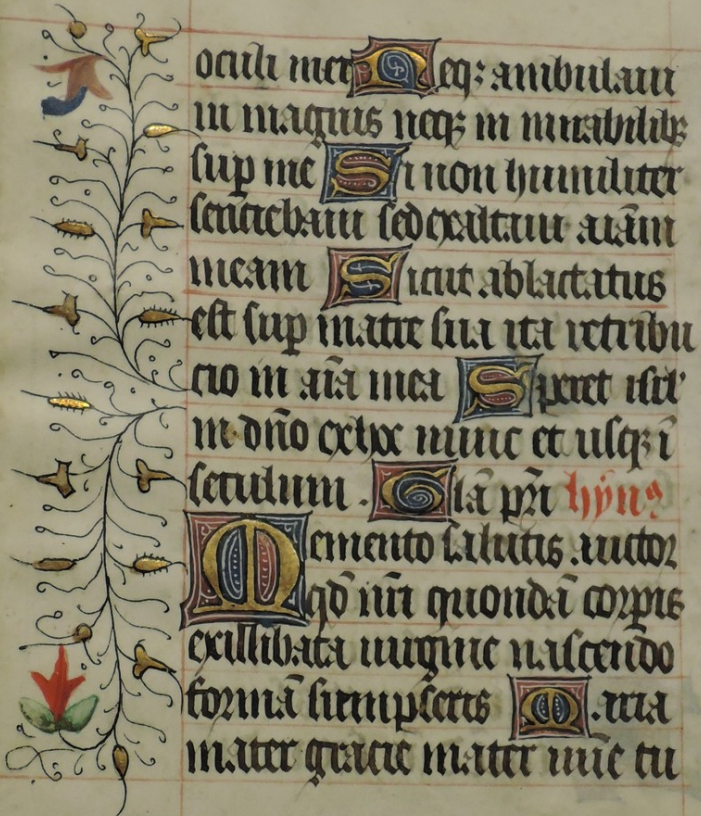 oculi mei Neq; ambulaui
in magnis neq; in mirabilib;
sup me Si non humiliter
sentiebam sed exaltaui aīam
meam Sicut ablactatus
est sup matre sua ita retribu
cio in aīa mea Speret isrl'
in dn̄o ex hoc nunc et usq; ī
seculum . Glā pr̄i hyn9
Memento salutis auctor
qd̄ nr̄i quondā corpis
ex illibata uirgine nascendo
formā sumpseris Maria
mater gracie mater mīe tu